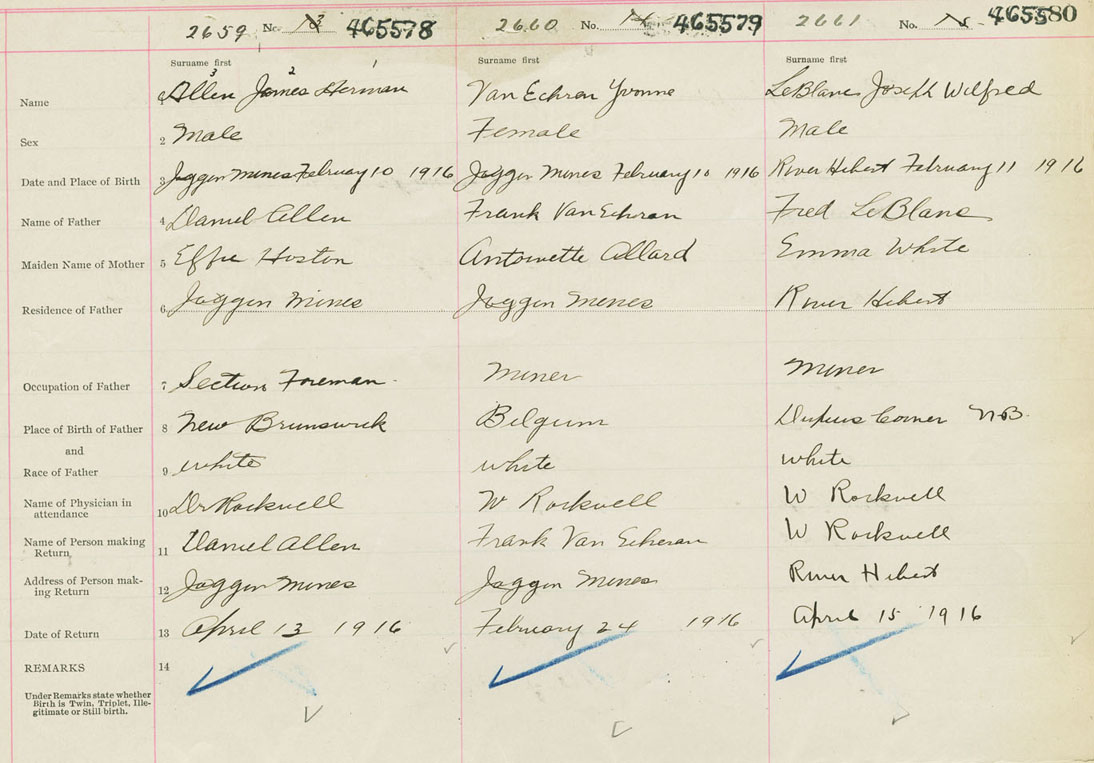 2659 No. 13 465578 2660 No. 14 465579 2661 No. 15 465580
Surname first Surname first Surname first
3 2 1
Name 1 Allen James Herman Van Echran Yvonne LeBlanc Joseph Wilfred
Sex 2 Male Female Male
Date and Place of Birth 3 Joggin Mines February 10 1916 Joggin Mines February 10 1916 River Hebert February 11 1916
Name of Father 4 Daniel Allen Frank Van Echran Fred LeBlanc
Maiden Name of Mother 5 Effie Hoston Antoinette Allard Emma White
Residence of Father 6 Joggin Mines Joggin Mines River Hebert
Occupation of Father 7 Section Foreman Miner Miner
Place of Birth of Father 8 New Brunswick Belgium Dupuis Corner N.B.
and
Race of Father 9 white white white
Name of Physician in
attendance 10 Dr Rockwell W Rockwell W Rockwell
Name of Person making
Return 11 Daniel Allen Frank Van Echran W Rockwell
Address of Person mak-
ing Return 12 Joggin Mines Joggin Mines River Hebert
Date of Return 13 April 13 1916 February 24 1916 April 15 1916
REMARKS 14
Under Remarks state whether
Birth is Twin, Triplet, Ille-
gitimate or Still-birth.